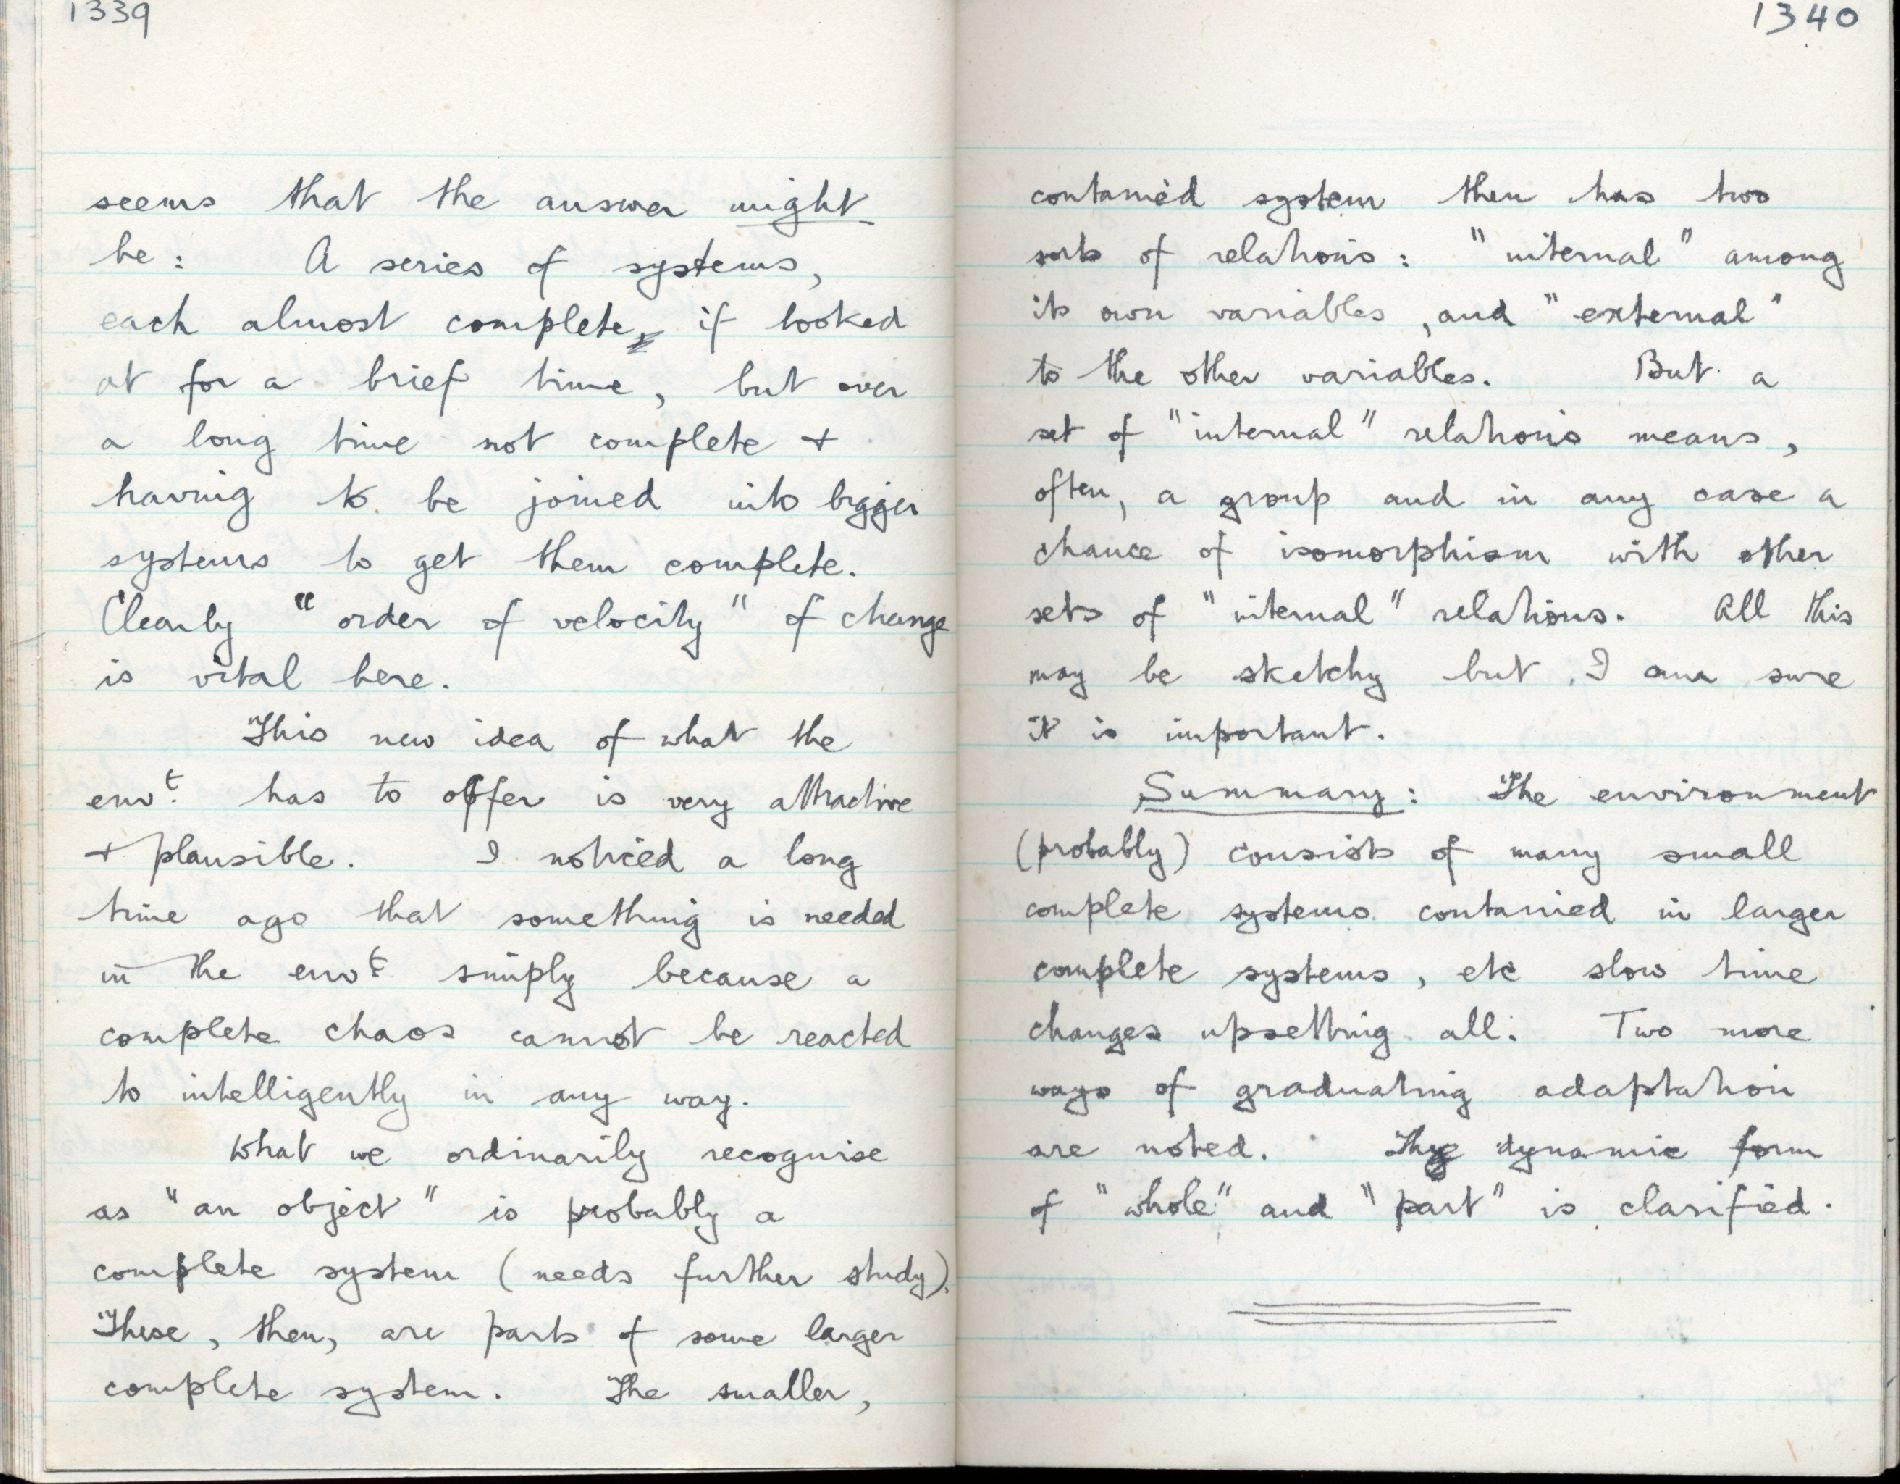 1339
seems that the answer might
be: A series of systems,
each almost complete, if looked
at for a brief time, but over
a long time not complete +
having to be joined into bigger
systems to get them complete.
Clearly "order of velocity" of change
is vital here.
This new idea of what the
envt. has to offer is very attractive
+ plausible. I noticed a long
time ago that something is needed
in the envt. simply because a
complete chaos cannot be reacted
to intelligently in any way.
What we ordinarily recognise
as "an object" is probably a
complete system (needs further study).
These, then, are parts of some larger
complete system. The smaller,
1340
contained system then has two
sorts of relations: "internal" among
its own variables, and "external"
to the other variables. But a
set of "internal" relations means,
often, a group and in any case a
chance of isomorphism with other
sets of "internal" relations. All this
may be sketchy but I am sure
it is important.
Summary: The environment
(probably) consists of many small
complete systems contained in larger
complete systems, etc slow time
changes upsetting all. Two more
ways of graduating adaptation
are noted. The dynamic form
of "whole" and "part" is clarified.